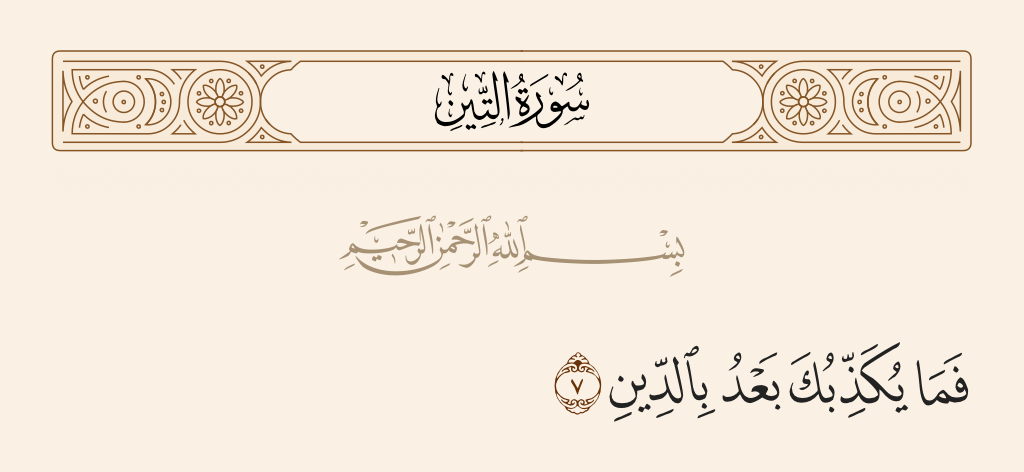 سُورَةُ التِّينِ
بِسْمِ ٱللَّهِ ٱلرَّحْمَٰنِ ٱلرَّحِيمِ
فَمَا يُكَذِّبُكَ بَعْدُ بِٱلدِّينِ ٧